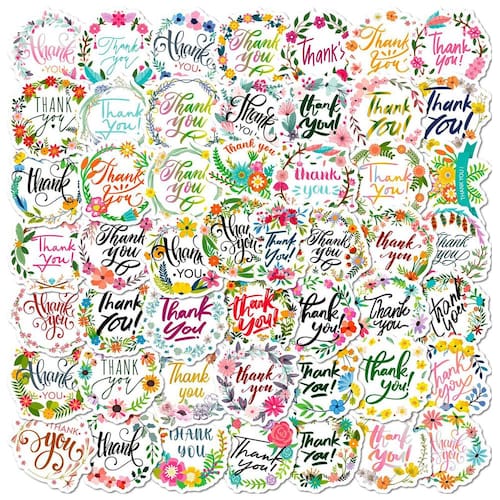 thank
YOU
Thank
you
thank
YOU
Thank
you
Thank's
Thank
you
Thank
you!
THANK
you
Thank
You!
Thank
you
Thank
you
Thank
You!
Thank
You!
Thank
You!
Thank
you
Thank
you
Thank
you
Thank you
thank
you
Thank
you
THANK YOU
Thank
You
Thank
you
Thank
YOU
Thank
You!
Thank
you
Thank
you
Thank
you
Thank
you
Thank
You!
Thank
You!
Thank
You!
Thank
You!
Thank
you
Thank
you
thank
YOU
THANK
you
Thank
you
Thank
you
Thank
You!
Thank
You!
Thank
you
Thank
You
Thank
you
THANK
YOU
Thank
You!
Thank
You!
Thank
You!
Thank
you